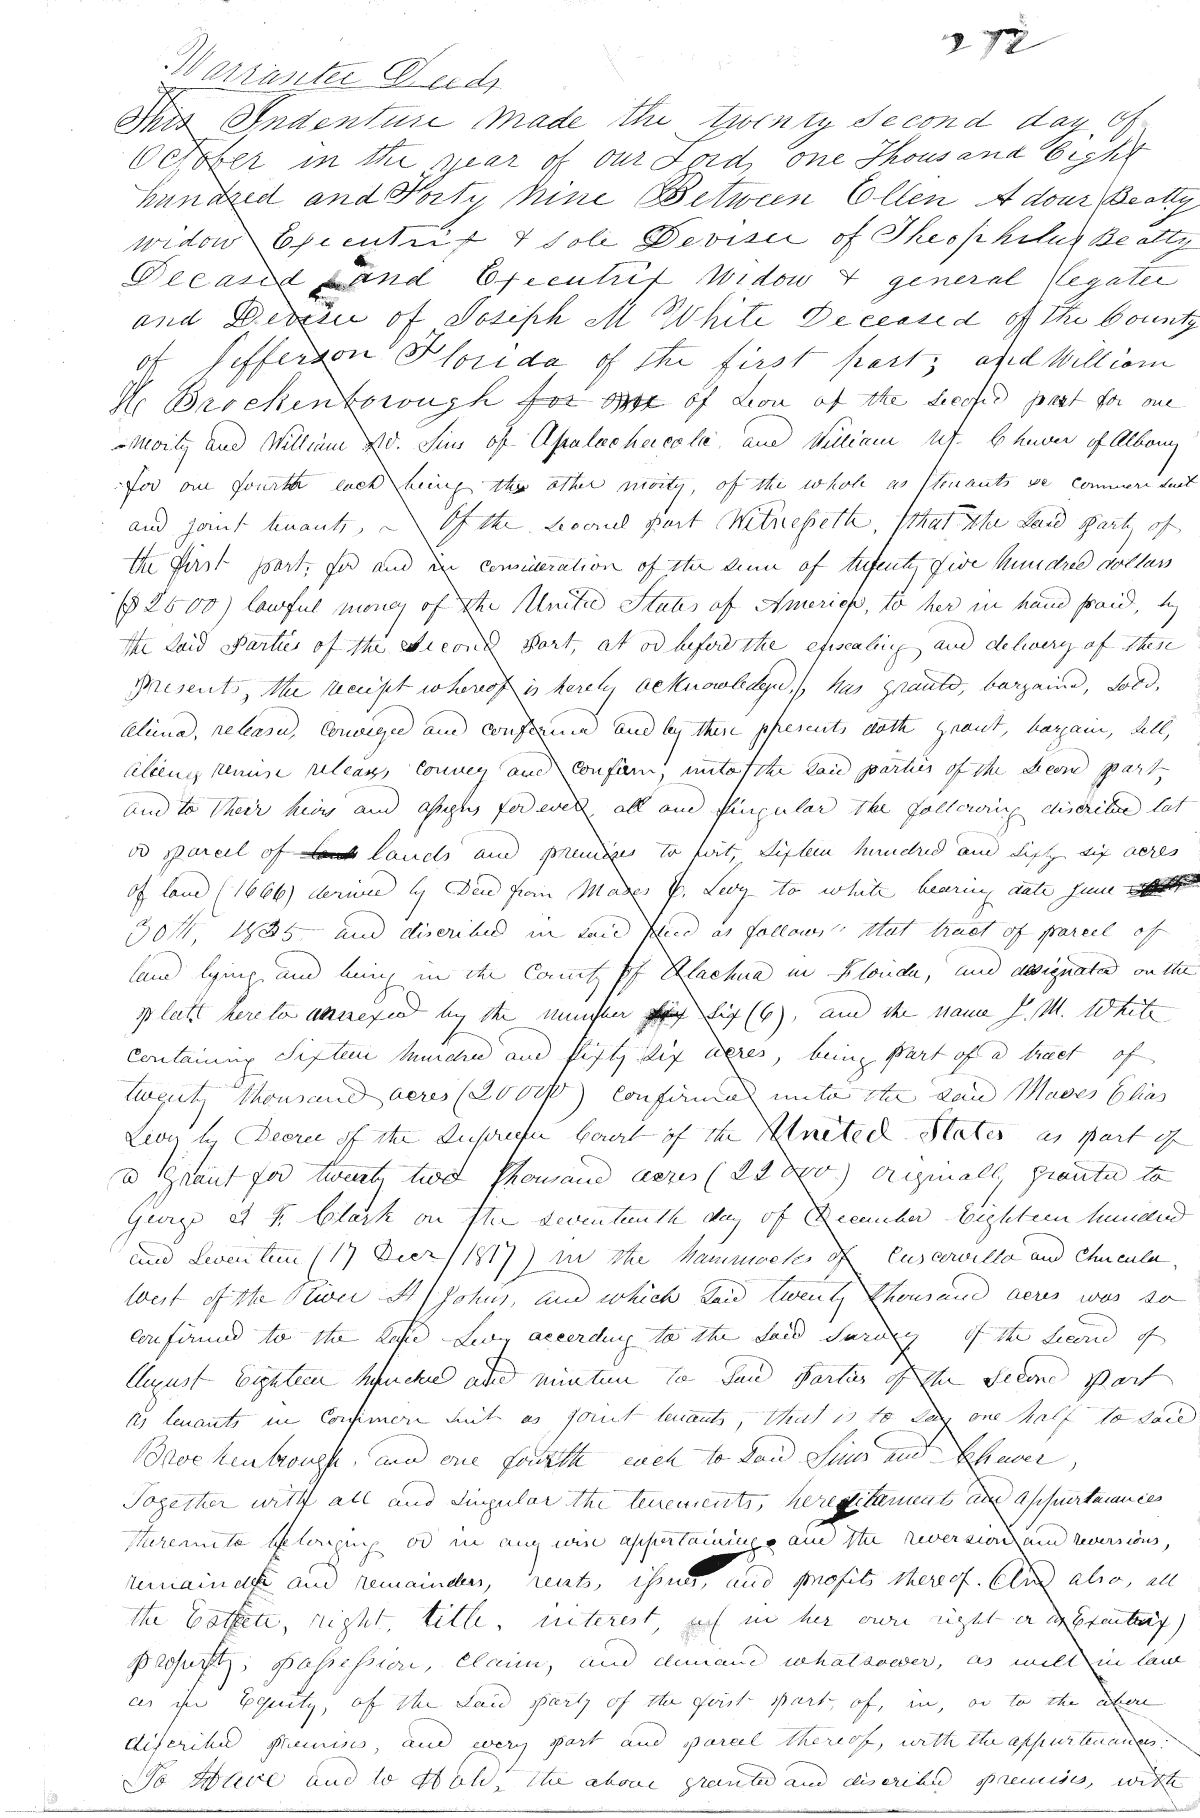 272
Warrantee Deeds
This Indenture made the twenty second day of
October in the year of our Lord, one Thousand Eight
hundred and Forty nine Between Ellen Adour Beatty
widow Executrix & sole Devisee of Theophilus Beatty
Decased and Executrix Widow & general legatee
and Devisee of Joseph M White Deceased of the County
of Jefferson Florida of the first part; and William
H Brockenborough for one of Leon of the second part for one
moity and William W. Sims of Apalachacola and William W. Chever of Albany
for one fourth each being the other moity, of the whole as tenants in common
and joint tenants, ~ Of the second part Witnesseth, that the said Party of
the first part, for and in consideration of the sum of twenty five hundred dollars
($2500) lawful money of the United States of America, to her in hand paid, by
the said Parties of the second Part, at or before the ensealing and delivery of these
Presents, the receipt whereof is hereby acknowledged, has granted, bargained, sold,
aliened, released, conveyed and confirmed and by these presents doth grant, bargain, sell,
aliens, remise release, convey and confirm, unto the said parties of the second part,
and to their heirs and assigns forever, all and singular the following discribed lot
or parcel of land lands and premises to wit, sixteen hundred and sixty six acres
of land (1666) derived by Deed from Moses E. Levy to white bearing date June
30th, 1835 and discribed in said deed as follows " that tract of parcel of
land lying and being in the County of Alachua in Florida, and designated on the
platt hereto annexed by the number six six (6), and the name J. M. White
containing Sixteen hundred and sixty six acres, being part of a tract of
twenty thousand acres (20000) confirmed unto the said Moses Elias
Levy by Decree of the Supreme Court of the United States as part of
a grant for twenty two thousand acres (22000) originally granted to
George I F. Clark on the seventeenth day of December Eighteen hundred
and Seventeen (17 Decr 1817) in the hammocks of Cuscowilla and Chucula,
West of the River St Johns, and which said twenty thousand acres was so
confirmed to the said Levy according to the said survey of the second of
August Eighteen hundred and nineteen to said Parties of the second Part
as tenants in common not as joint tenants, that is to say one half to said
Brockenbrough, and one fourth each to said Sims and Chever,
Together with all and singular the tenements, hereditaments and appurtenances
thereunto belonging or in any wise appertaining, and the reversion and reversions,
remainder and remainders, rents, issues, and profits thereof. And also, all
the Estate, right, title, interest, (in her own right or as Executrix)
property, possession, claim, and demand whatsoever, as well in law
as in Equity, of the said party of the first part, of, in, or to the above
discribed premises, and every part and parcel thereof, with the appurtenances:
To Have and to Hold, the above granted and discribed premises, with